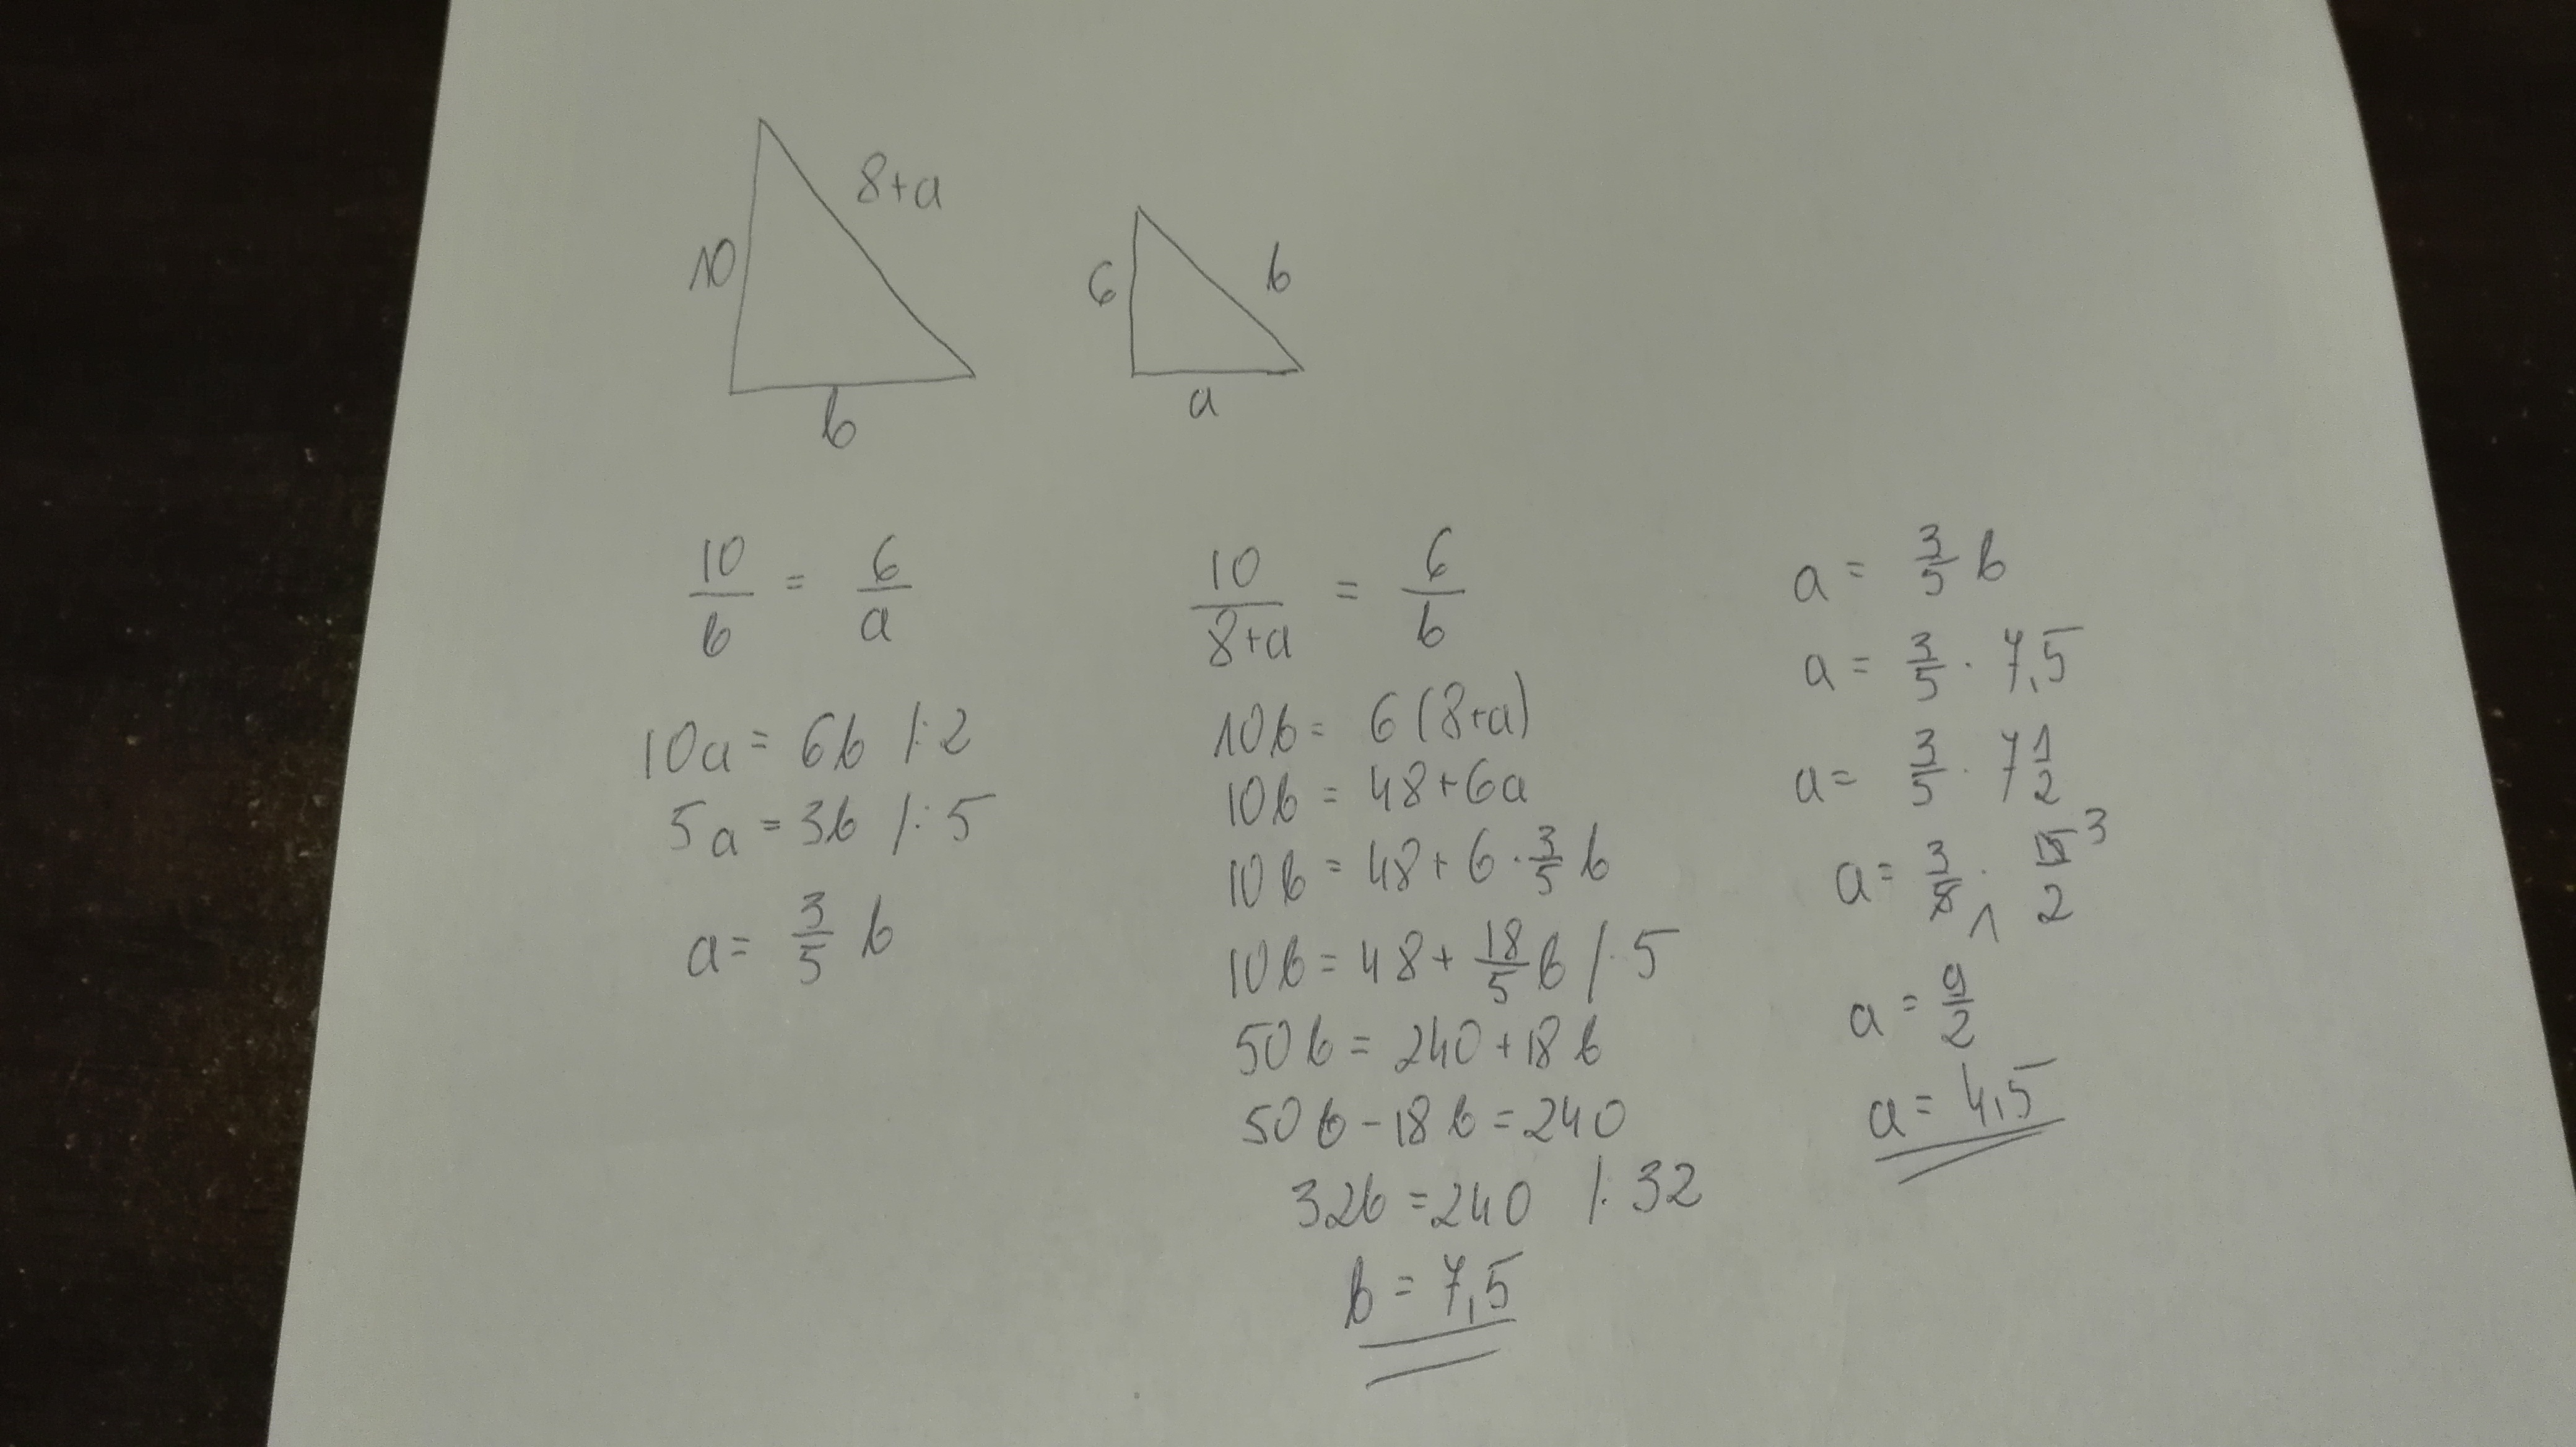 8+a
10
b
6
b
a
10/b = 6/a
10a = 6b /:2
5a = 3b /:5
a = 3/5 b
10/(8+a) = 6/b
10b = 6(8+a)
10b = 48+6a
10b = 48+6·3/5 b
10b = 48+ 18/5 b /·5
50b = 240+18b
50b-18b = 240
32b = 240 /:32
b = 7,5
a = 3/5 b
a = 3/5 · 7,5
a = 3/5 · 7 1/2
a = 3/5 1 · 15 3/2
a = 9/2
a = 4,5